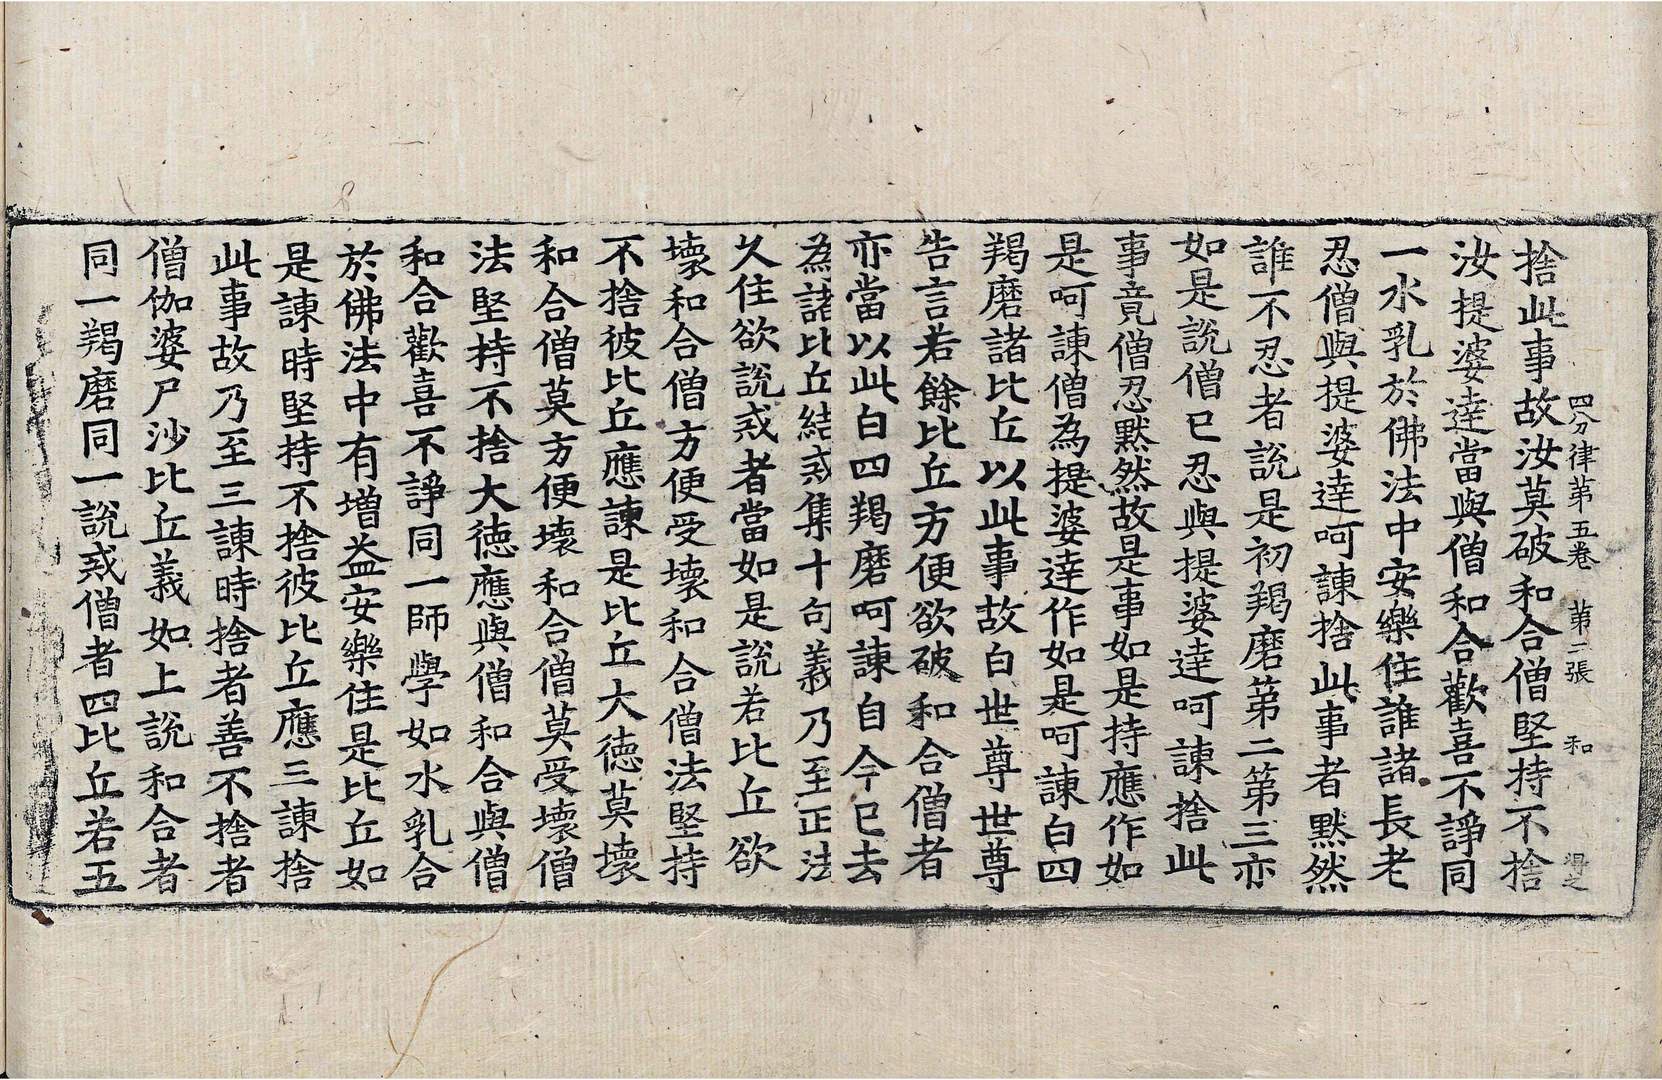 四分律第五卷　第二張　和　得之
捨此事故汝莫破和合僧堅持不捨
汝提婆達當與僧和合歡喜不諍同
一水乳於佛法中安樂住誰諸長老
忍僧與提婆達呵諫捨此事者默然
誰不忍者說是初羯磨第二第三亦
如是說僧已忍與提婆達呵諫捨此
事竟僧忍默然故是事如是持應作如
是呵諫僧為提婆達作如是呵諫白四
羯磨諸比丘以此事故白世尊世尊
告言若餘比丘方便欲破和合僧者
亦當以此白四羯磨呵諫自今已去
為諸比丘結戒集十句義乃至正法
久住欲說戒者當如是說若比丘欲
壞和合僧方便受壞和合僧法堅持
不捨彼比丘應諫是比丘大德莫壞
和合僧莫方便壞和合僧莫受壞僧
法堅持不捨大德應與僧和合與僧
和合歡喜不諍同一師學如水乳合
於佛法中有增益安樂住是比丘如
是諫時堅持不捨彼比丘應三諫捨
此事故乃至三諫時捨者善不捨者
僧伽婆尸沙比丘義如上說和合者
同一羯磨同一說戒僧者四比丘若五